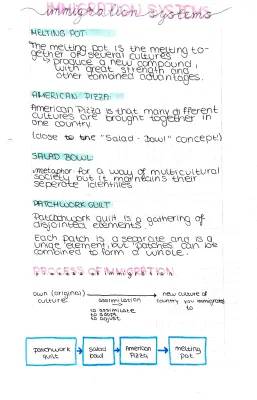 IMMIGRATION SYSTEMS
immigration systems
MELTING POT
The melting pot is the melting to-
gether of several cultures
↳ produce a new compound,
with great strength and
other combined advantages.
AMERICAN PIZZA
American Pizza is that many different
cultures are brought together in
one country.
(close to the "Salad-Bowl" concept)
SALAD BOWL
metaphor for a way of multicultural
society but it maintains their
seperate identities
PATCHWORK QUILT
Patchwork quilt is a gathering of
disjointed elements
Each patch is a separate and is a
unige element, but patches can be
combined to form a whole.
PROCESS OF IMMIGRATION
own (original) → new culture of
culture assimilation country you immigrate
to assimilate to
to adapt
to adjust
patchwork quilt → salad bowl → American Pizza → melting pot